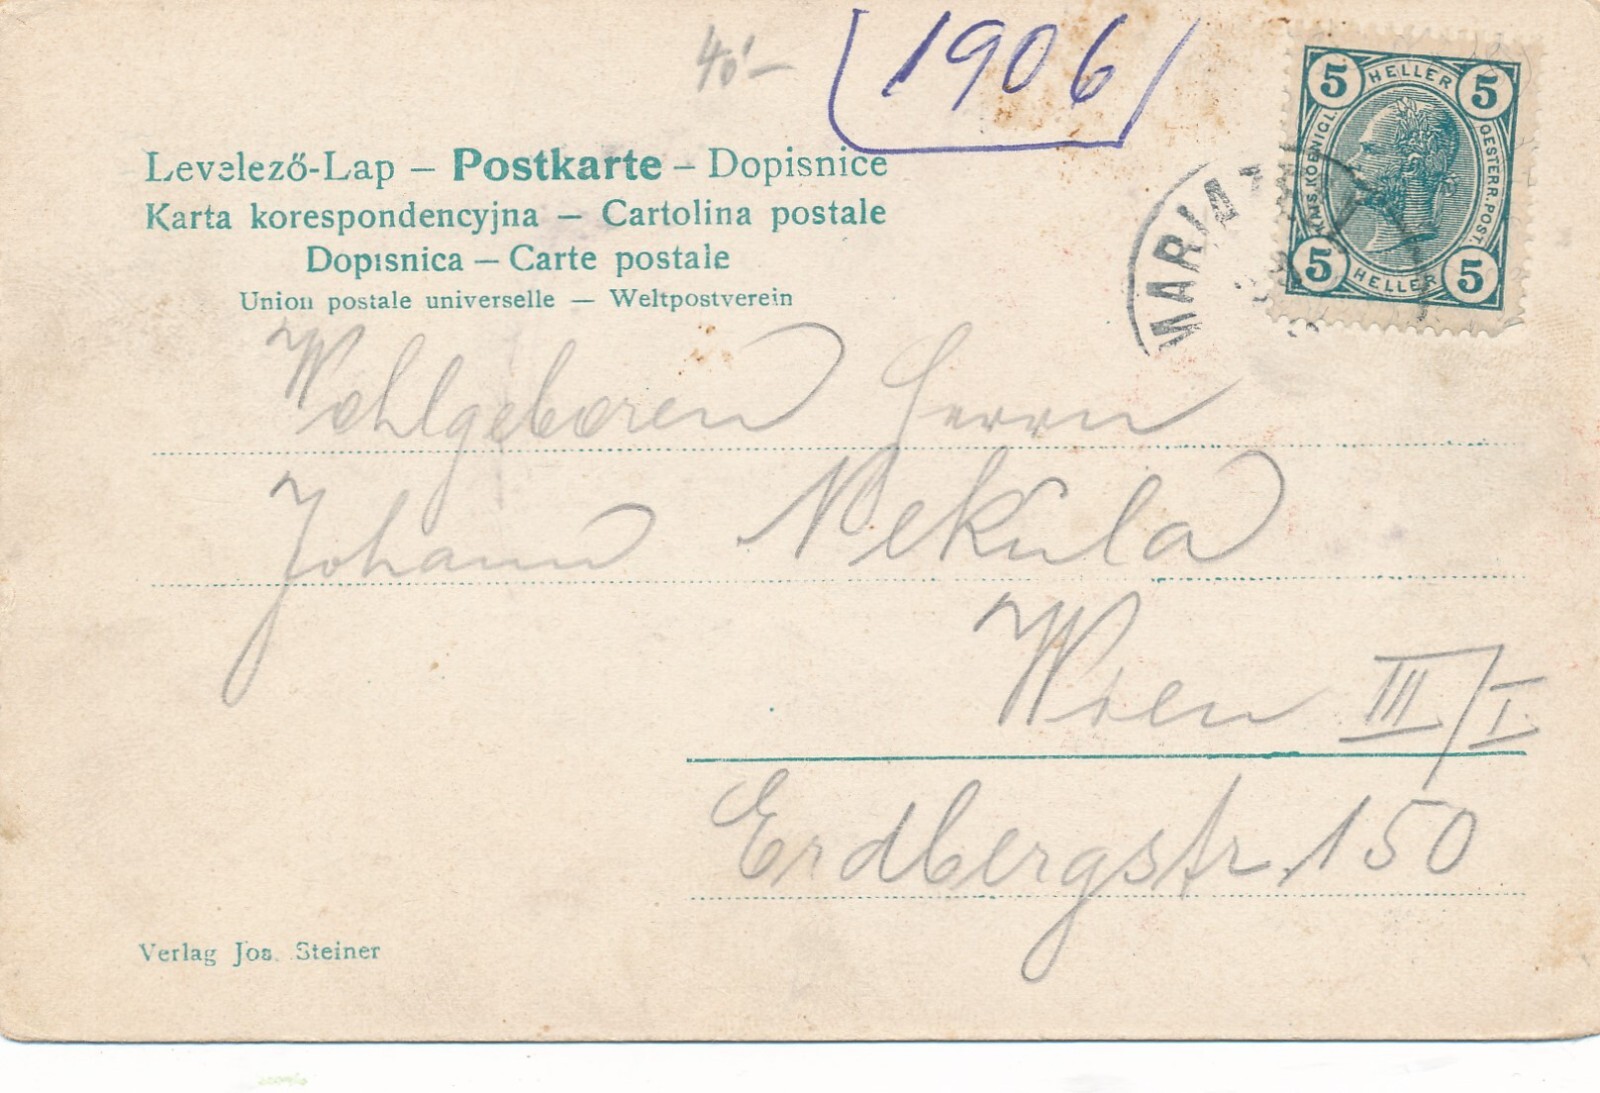 40'–
1906
Levelező-Lap – Postkarte – Dopisnice
Karta korespondencyjna – Cartolina postale
Dopisnica – Carte postale
Union postale universelle — Weltpostverein
5 HELLER 5
KAIS. KOENIGL. OESTERR. POST.
5 HELLER 5
MARIAZ
Wohlgeboren Herrn
Johann Nekula
Wien III/I
Erdbergstr. 150
Verlag Jos. Steiner